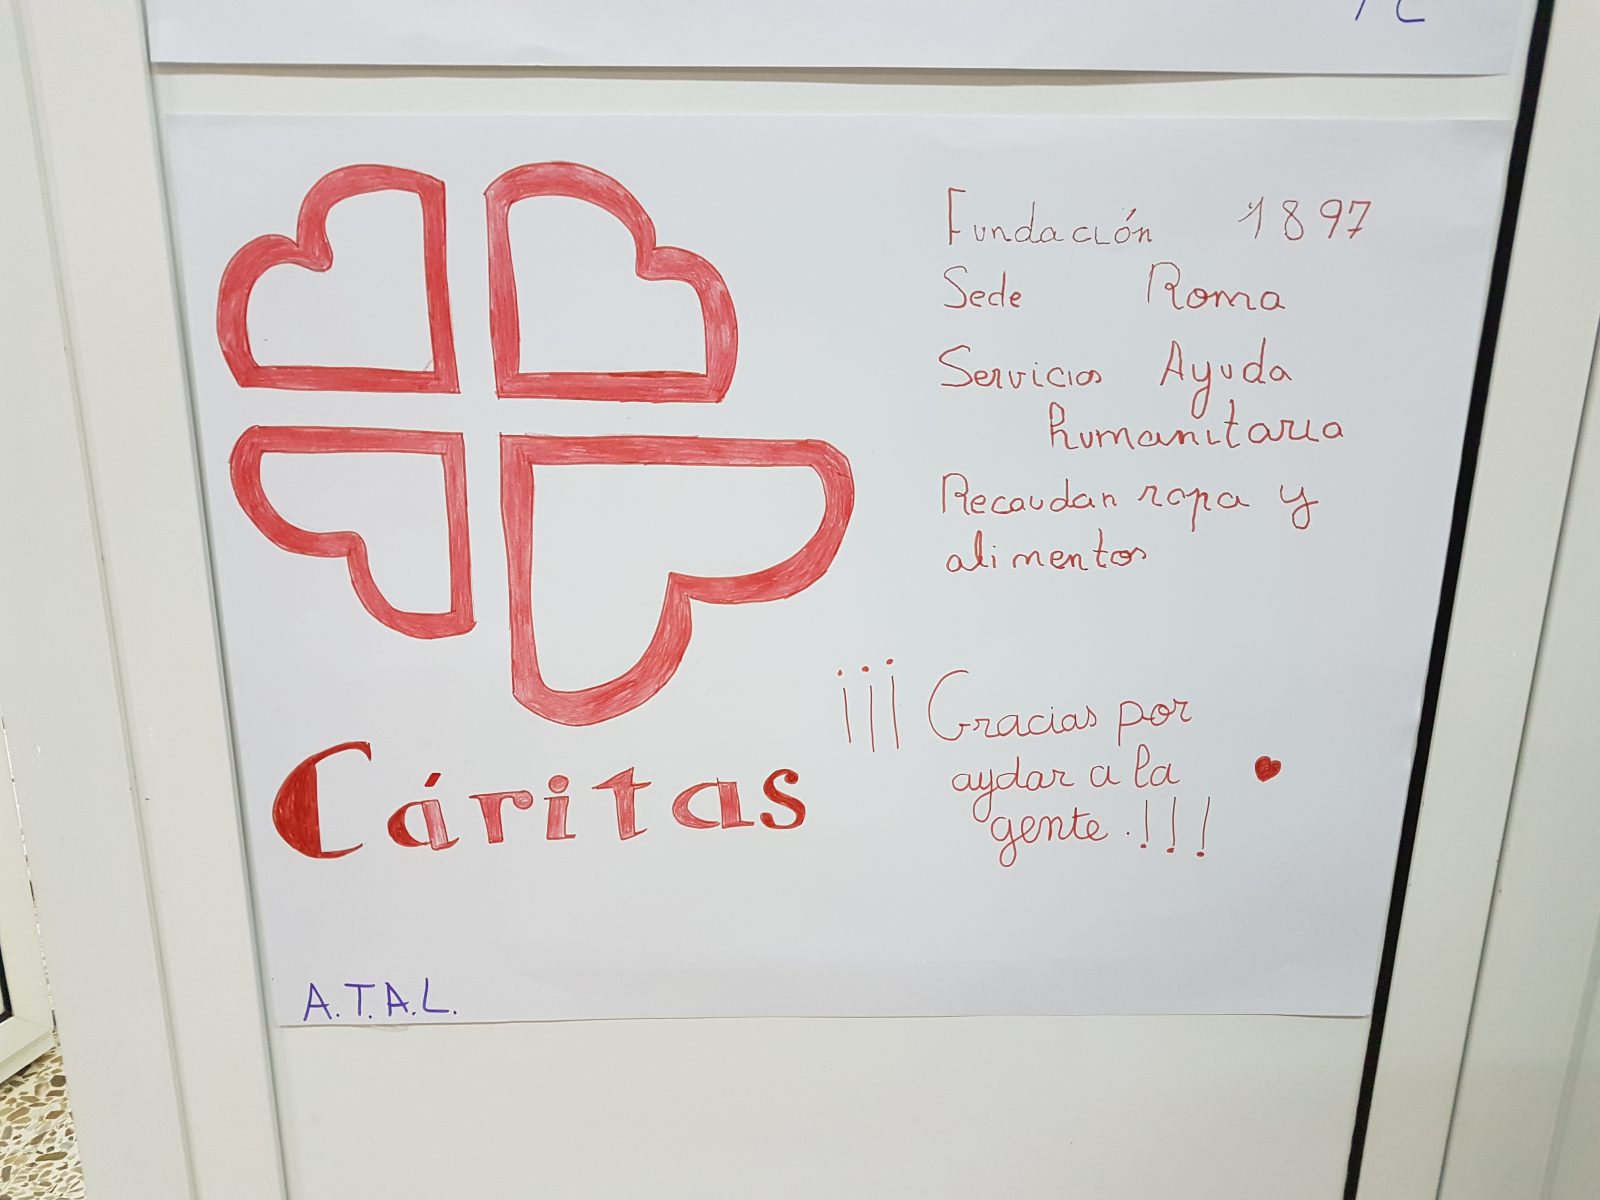 Fundación 1897
Sede Roma
Servicios Ayuda
humanitaria
Recaudan ropa y
alimentos
¡¡¡ Gracias por
aydar a la
gente.!!!
Cáritas
A.T.A.L.